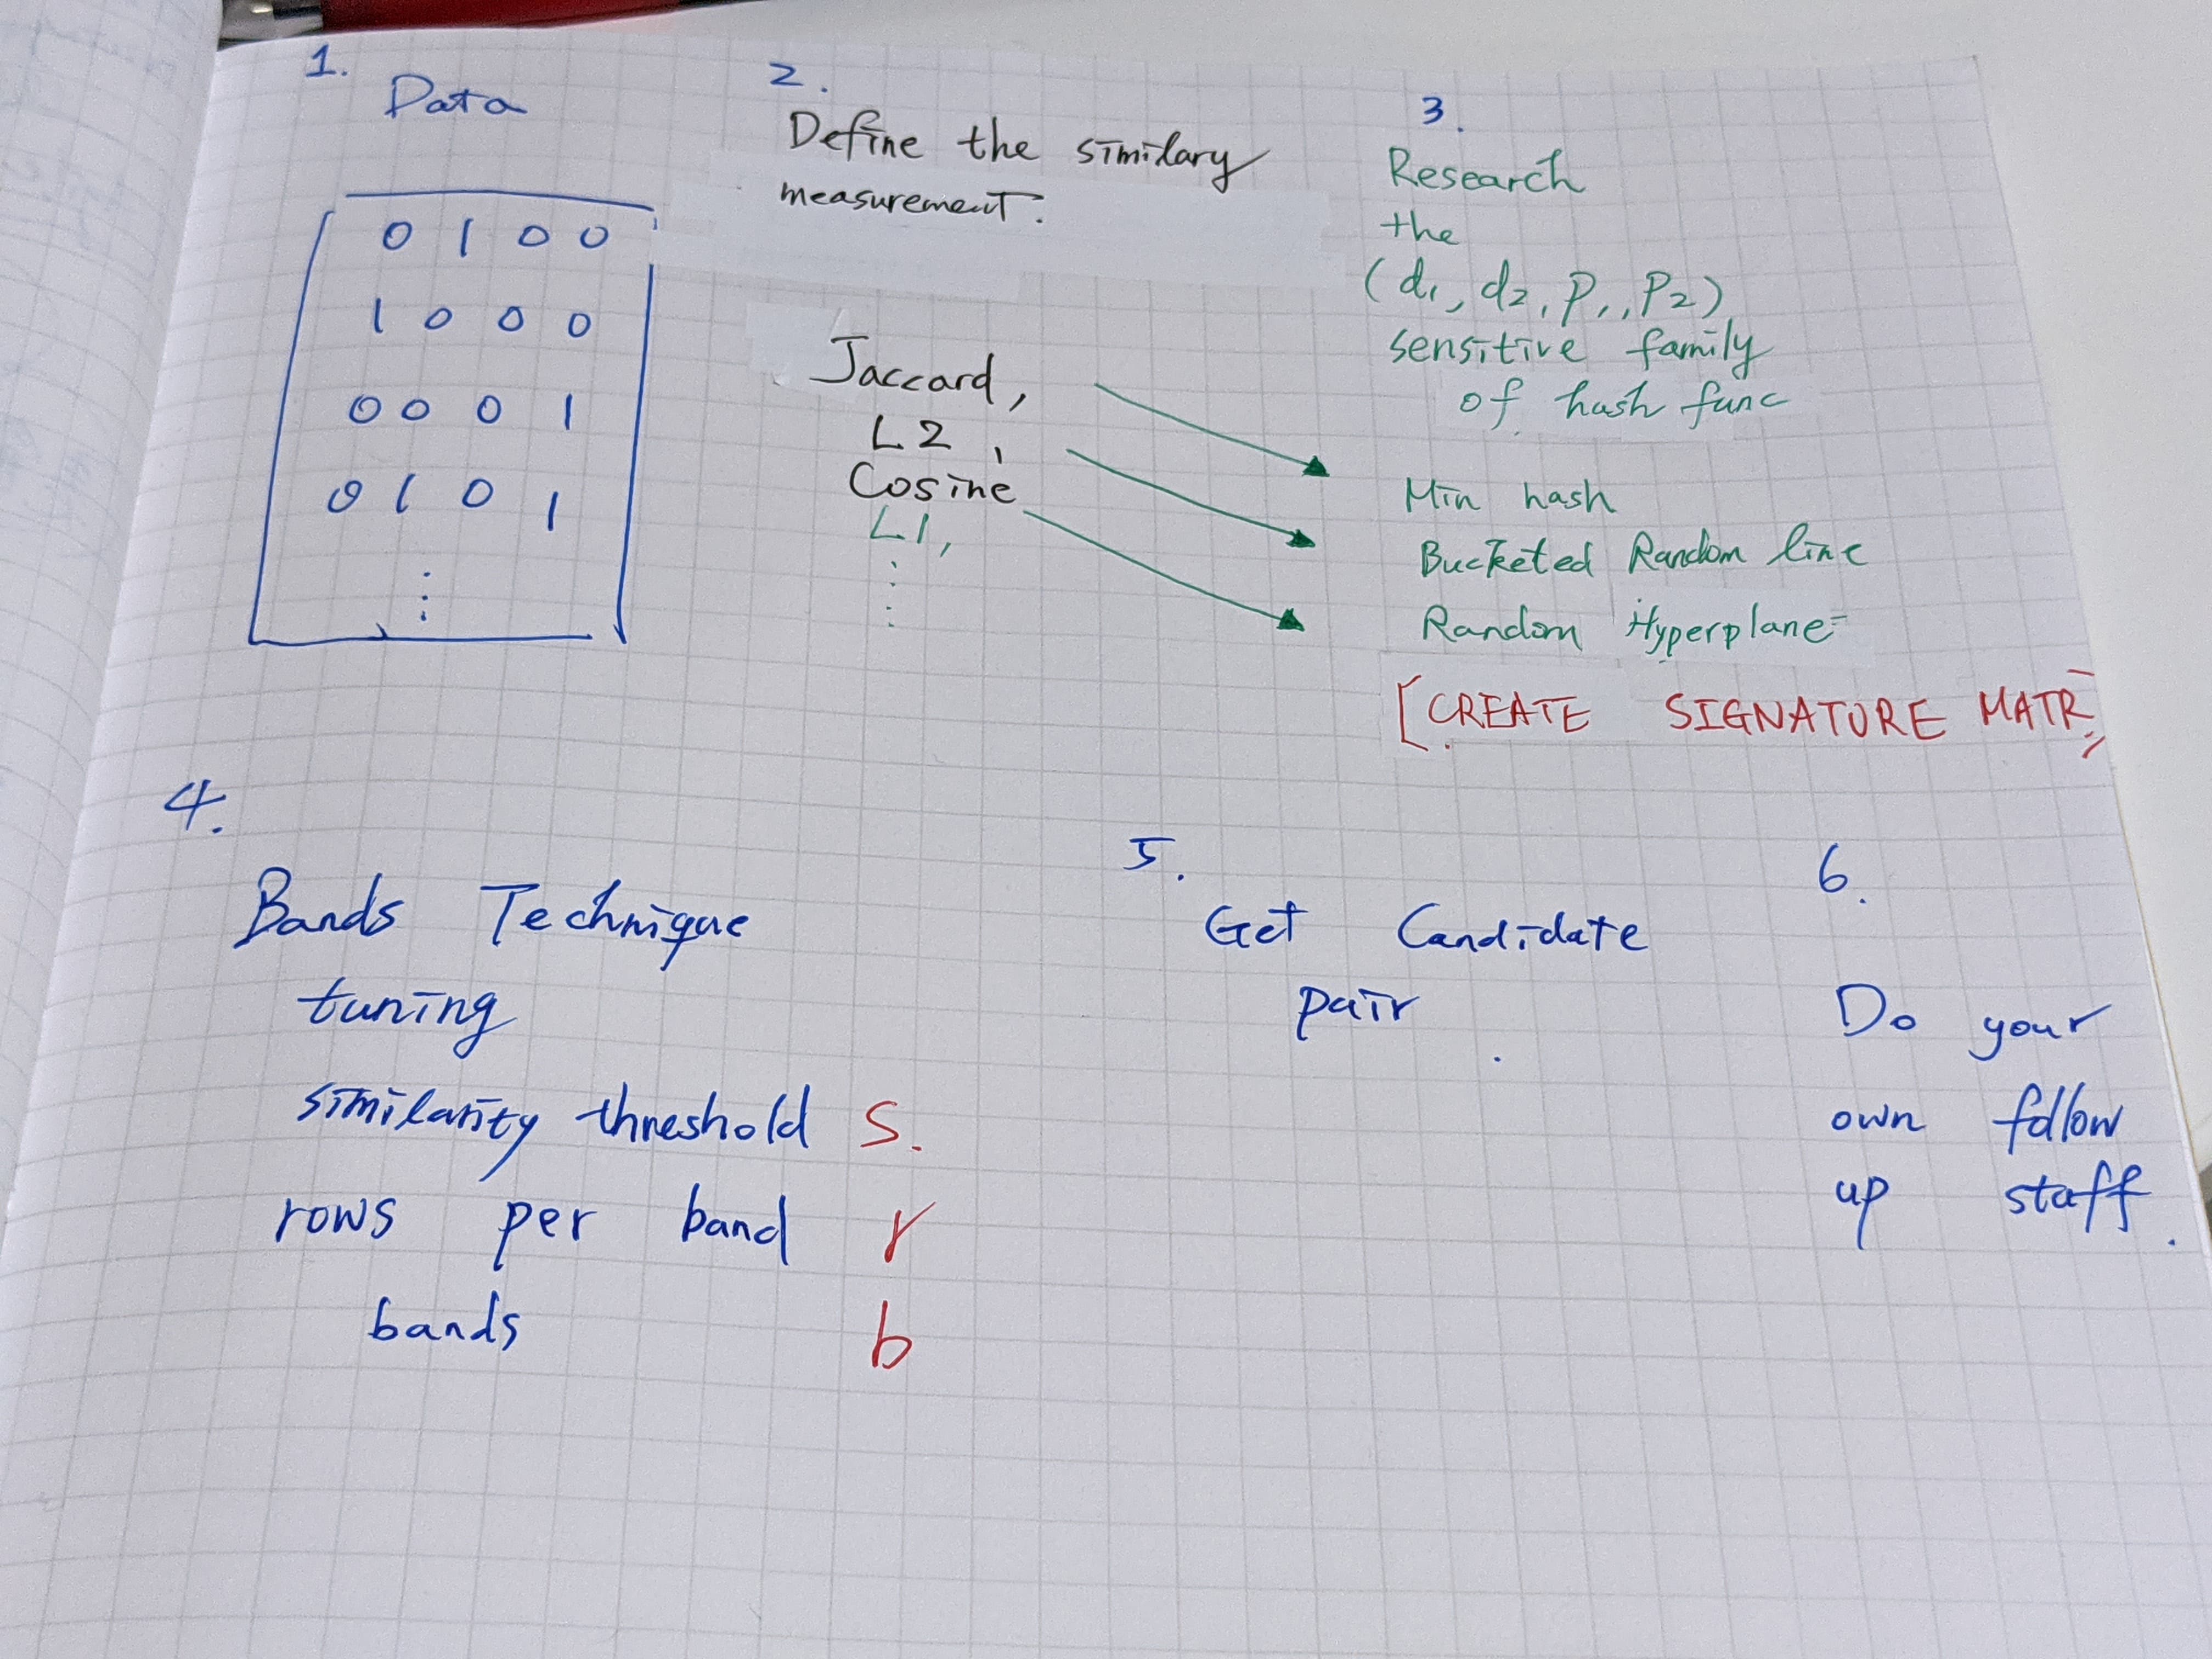 1.
Data
0 1 0 0
1 0 0 0
0 0 0 1
0 1 0 1
⋮
2.
Define the similary
measurement.
Jaccard,
L2,
Cosine
L1,
⋮
3.
Research
the
(d1, d2, p1, p2)
sensitive family
of hash func
Min hash
Bucketed Random line
Random Hyperplane
[CREATE SIGNATURE MATR
4.
Bands Technique
tuning
similarity threshold s.
rows per band r
bands b
5.
Get Candidate
pair.
6.
Do your
own follow
up staff.